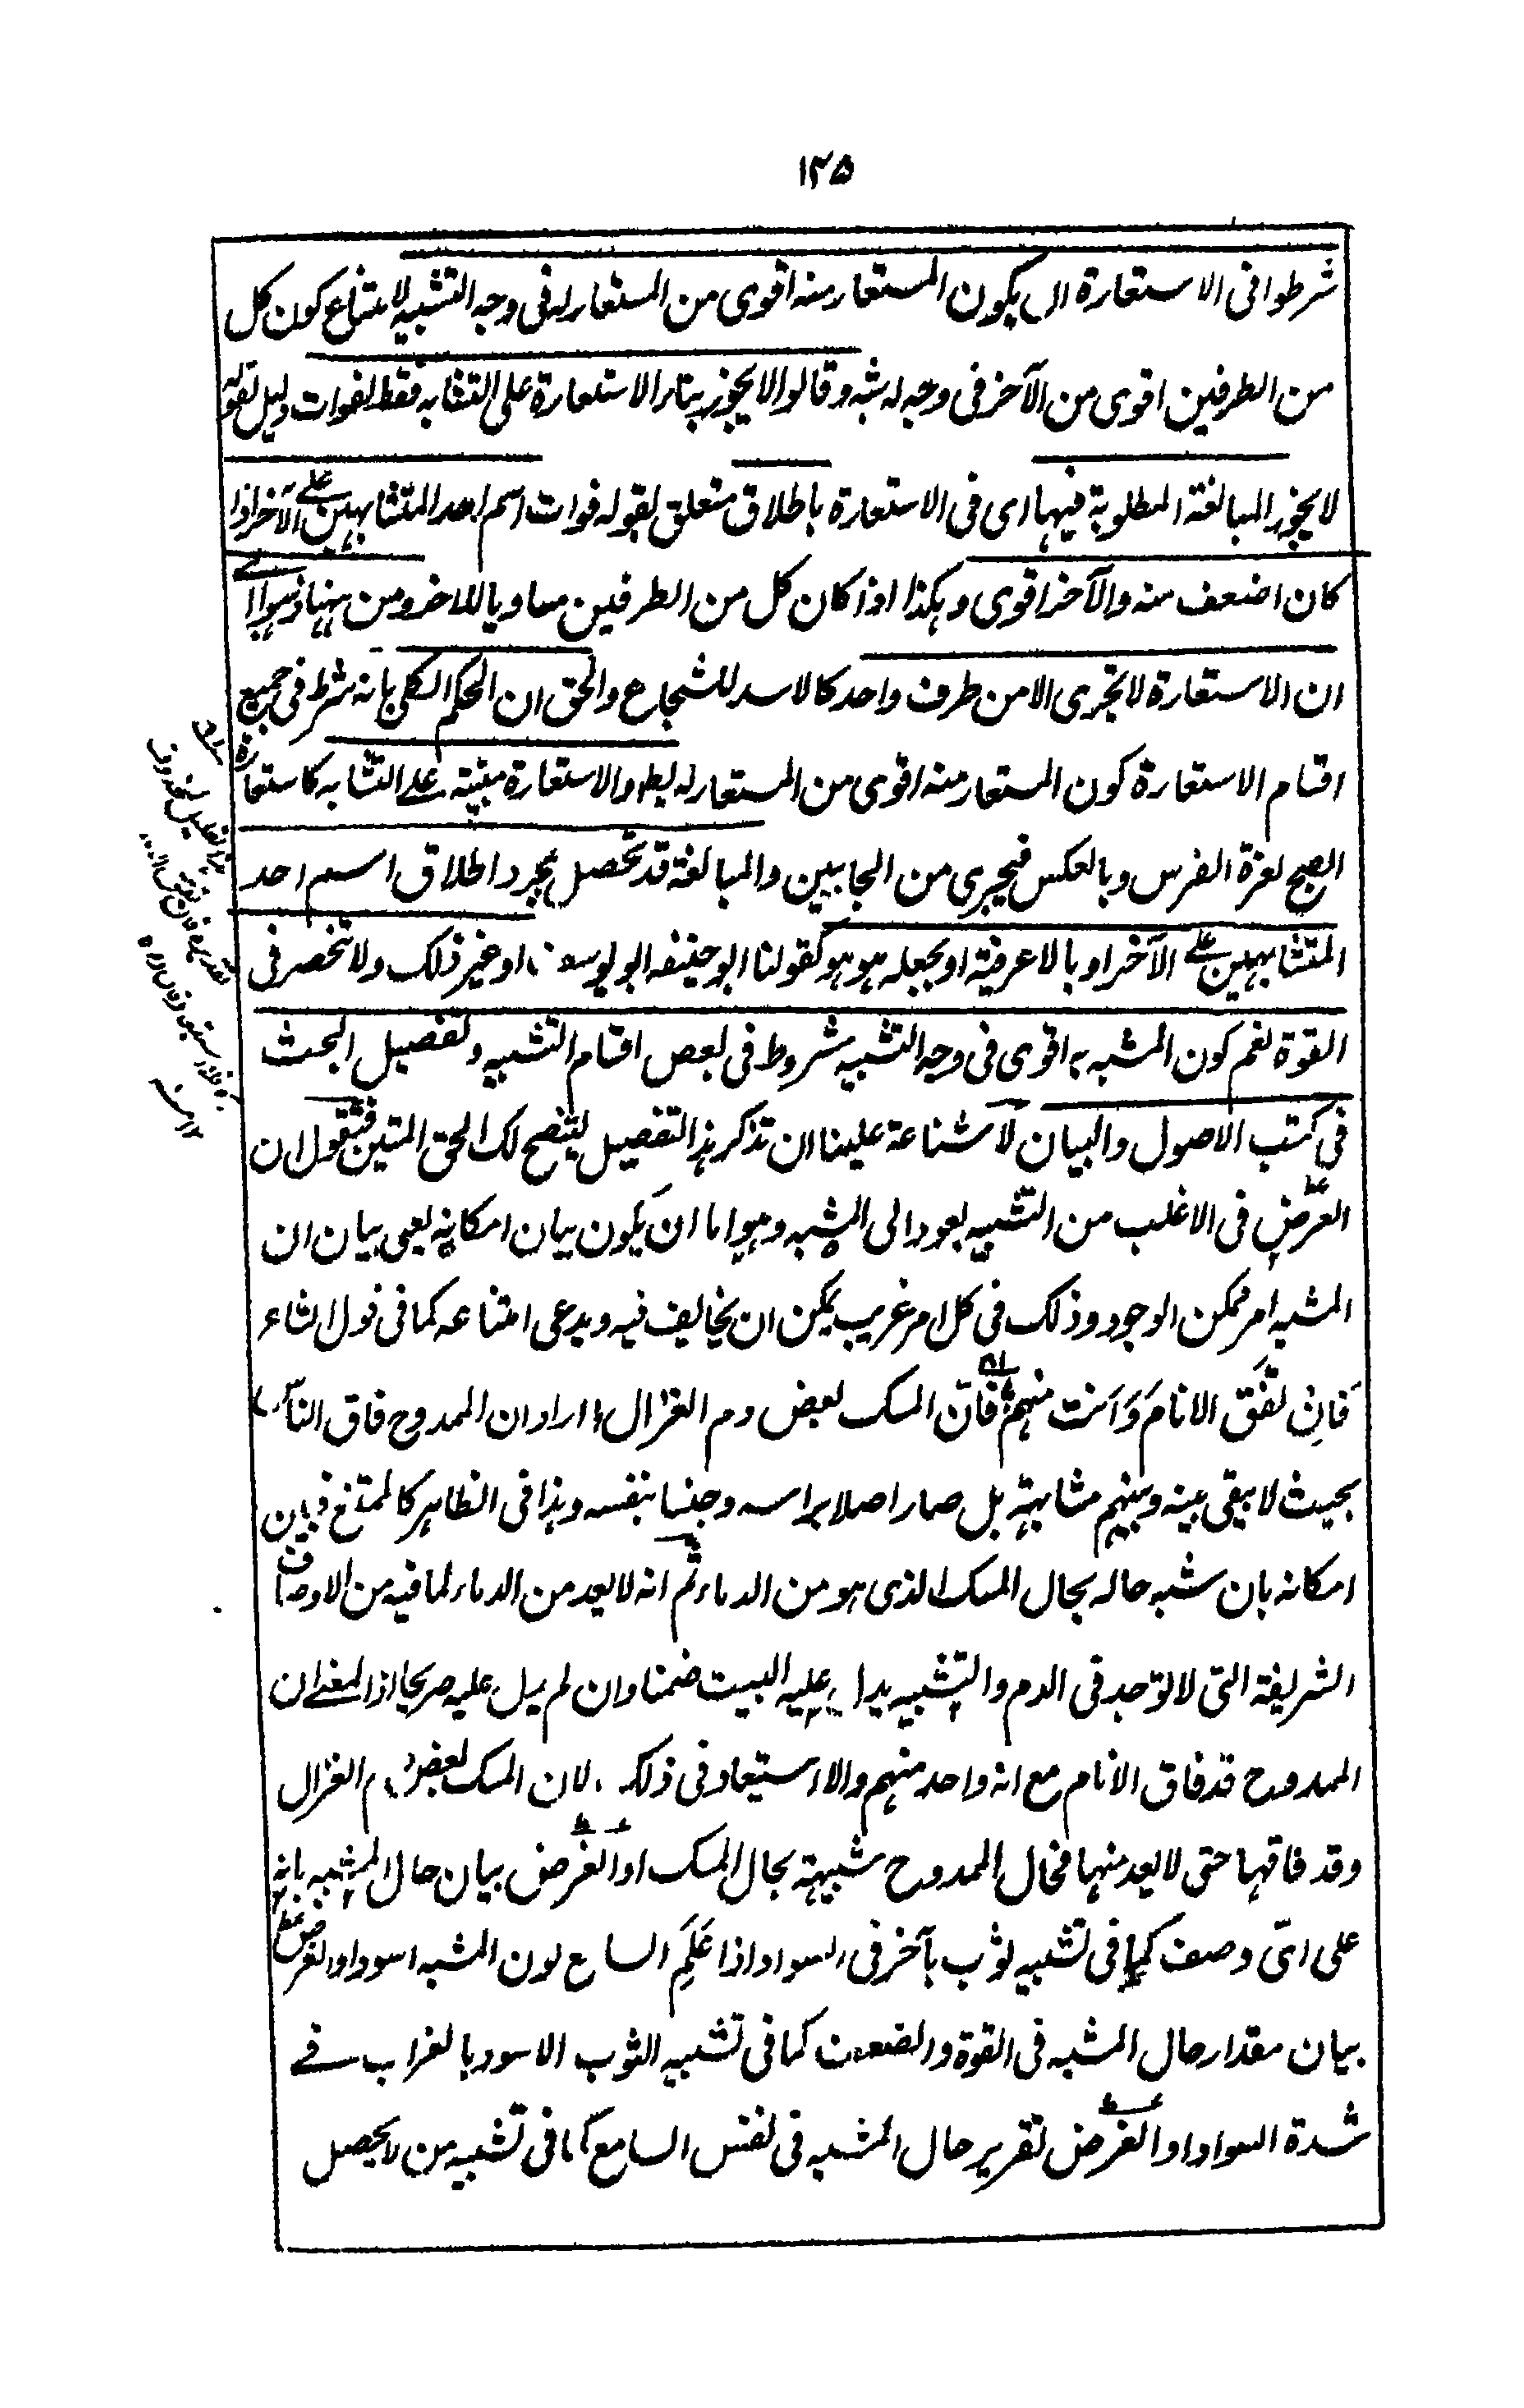 ١٢٥
شرطوا فى الاستعارة ان يكون المستعار منه اقوى من المستعار له فى وجه التشبيه لامتناع كون كل
من الطرفين اقوى من الآخر فى وجه له شبه وقالوا لا يجوز بناء الاستعارة على التشابه فقط لفوات دليل لقوله
لا يجوز المبالغة المطلوبة فيها اى فى الاستعارة باطلاق متعلق بقوله فوات اسم احد المتشابهين على الآخر اذا
كان اضعف منه والآخر اقوى وهكذا اذا كان كل من الطرفين مساويا للاخر ومن ههنا ذهبوا الى
ان الاستعارة لا تجرى الا من طرف واحد كالاسد للشجاع والحق ان الحكم الكلى بانه شرط فى جميع
اقسام الاستعارة كون المستعار منه اقوى من المستعار له والاستعارة مبنية على التشابه كاستعارة
الصبح لغرة الفرس وبالعكس فيجرى من الجانبين والمبالغة قد تحصل بمجرد اطلاق اسم احد
المتشابهين على الآخر او بالاعرفية او بجعله هو هو كقولنا ابو حنيفه ابو يوسف او غير ذلك ولا تنحصر فى
القوة نعم كون المشبه به اقوى فى وجه التشبيه مشروط فى بعض اقسام التشبيه وتفصيل البحث
فى كتب الاصول والبيان لا شناعة علينا ان نذكر هذا التفصيل ليتضح لك الحق المتين فنقول ان
الغرض فى الاغلب من التشبيه يعود الى المشبه وهو اما ان يكون بيان امكانه يعنى بيان ان
المشبه امر ممكن الوجود وذلك فى كل امر غريب يمكن ان يخالف فيه ويدعى امتناعه كما فى قول الشاعر
فَانِ تَفُق الانامَ وَاَنت منهم فانّ المسك بعض دم الغزال اراد ان الممدوح فاق الناس
بحيث لا يبقى بينه وبينهم مشابهة بل صار اصلا براسه وجنسا بنفسه وهذا فى الظاهر كالممتنع فبيان
امكانه بان شبه حاله بحال المسك الذى هو من الدماء ثم انه لا يعد من الدماء لما فيه من الاوصاف
الشريفة التى لا توجد فى الدم والتشبيه يدل عليه البيت ضمنا وان لم يدل عليه صريحا اذ المعنے ان
الممدوح قد فاق الانام مع انه واحد منهم ولا استبعاد فى ذلك لان المسك بعض دم الغزال
وقد فاقها حتى لا يعد منها فحال الممدوح شبيهة بحال المسك او الغرض بيان حال المشبه بانه
على اىّ وصف كما فى تشبيه ثوب بآخر فى السواد اذا عَلِمَ السامع لون المشبه اسود او الغرض
بيان مقدار حال المشبه فى القوة والضعف كما فى تشبيه الثوب الاسود بالغراب فے
شدة السواد او الغرض تقرير حال المشبه فى نفس السامع كما فى تشبيه من لا يحصل